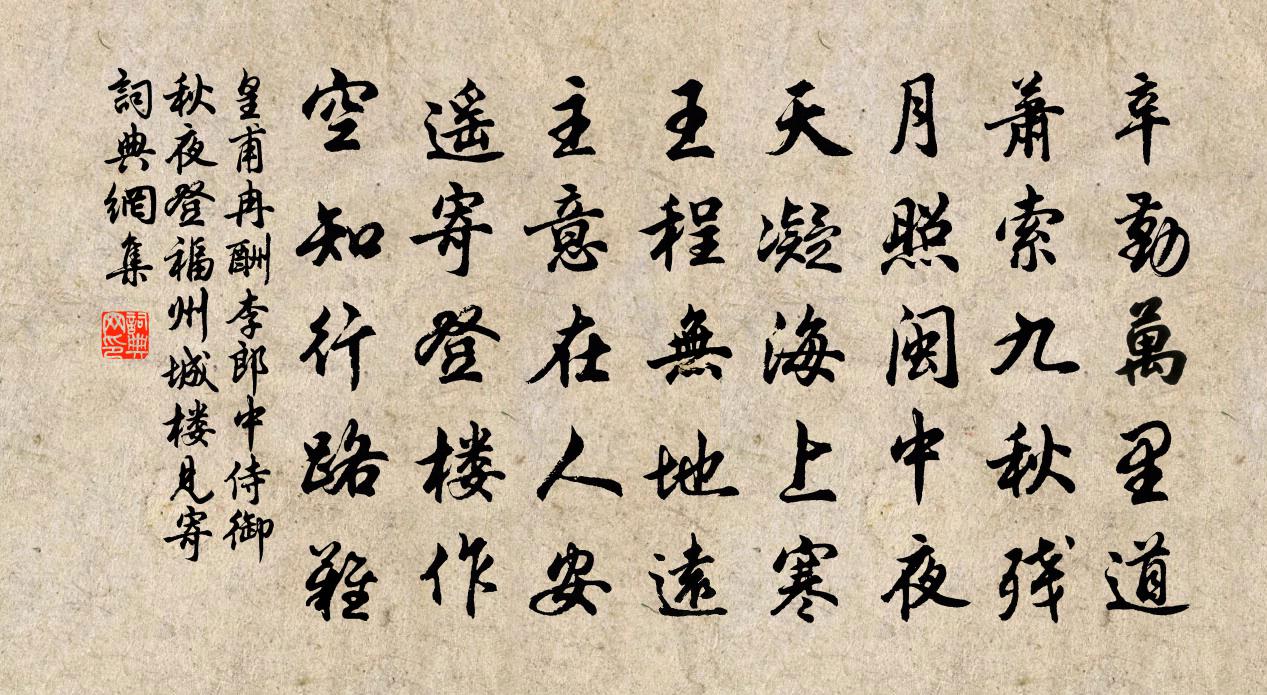 辛勤萬里道
蕭索九秋残
月照閩中夜
天凝海上寒
王程無地遠
主意在人安
遥寄登楼作
空知行路難
皇甫冉酬李郎中侍御
秋夜登福州城楼見寄
詞典網集
詞典网印